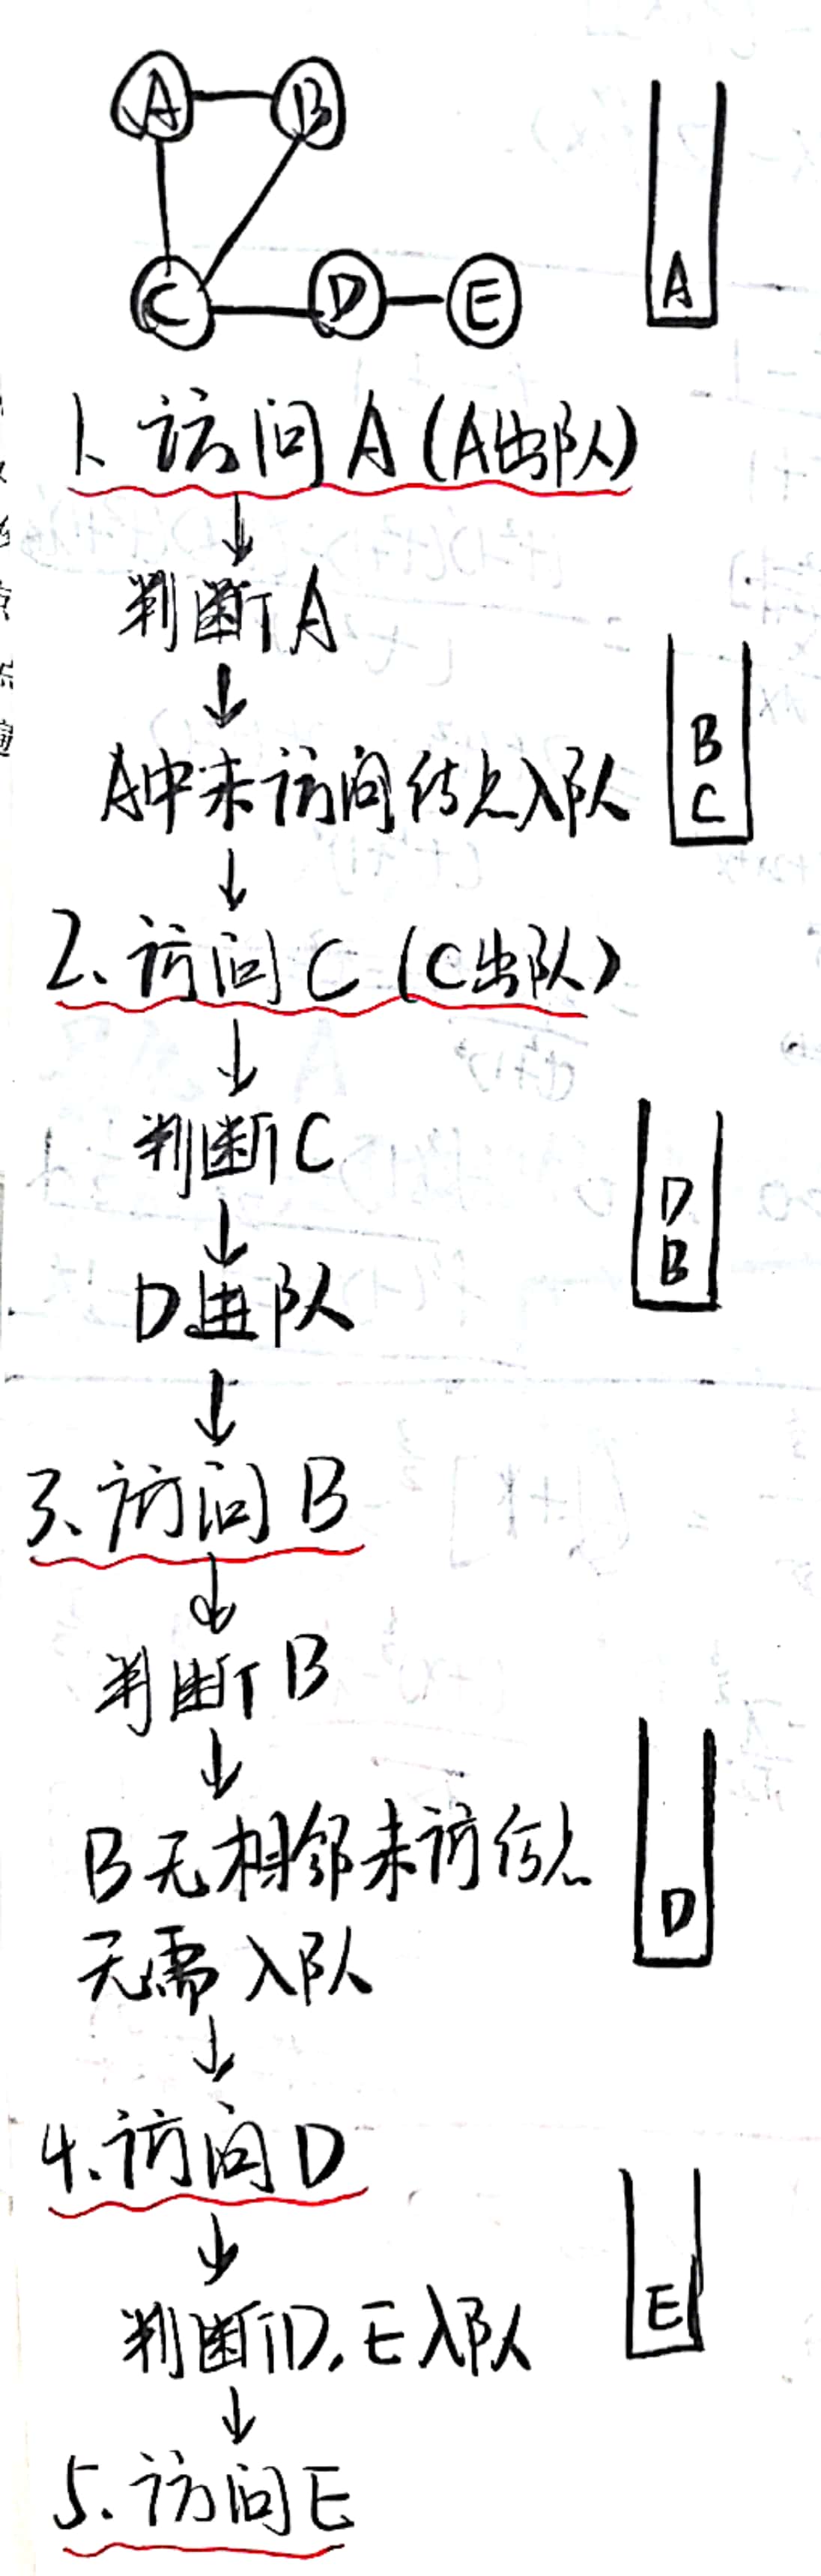 A B
C D E
A
1. 访问A(A出队)
↓
判断A
↓
A中未访问结点入队
B
C
↓
2. 访问C(C出队)
↓
判断C
↓
D进队
D
B
↓
3. 访问B
↓
判断B
↓
B无相邻未访结点
无需入队
D
↓
4. 访问D
↓
判断D, E入队
E
↓
5. 访问E